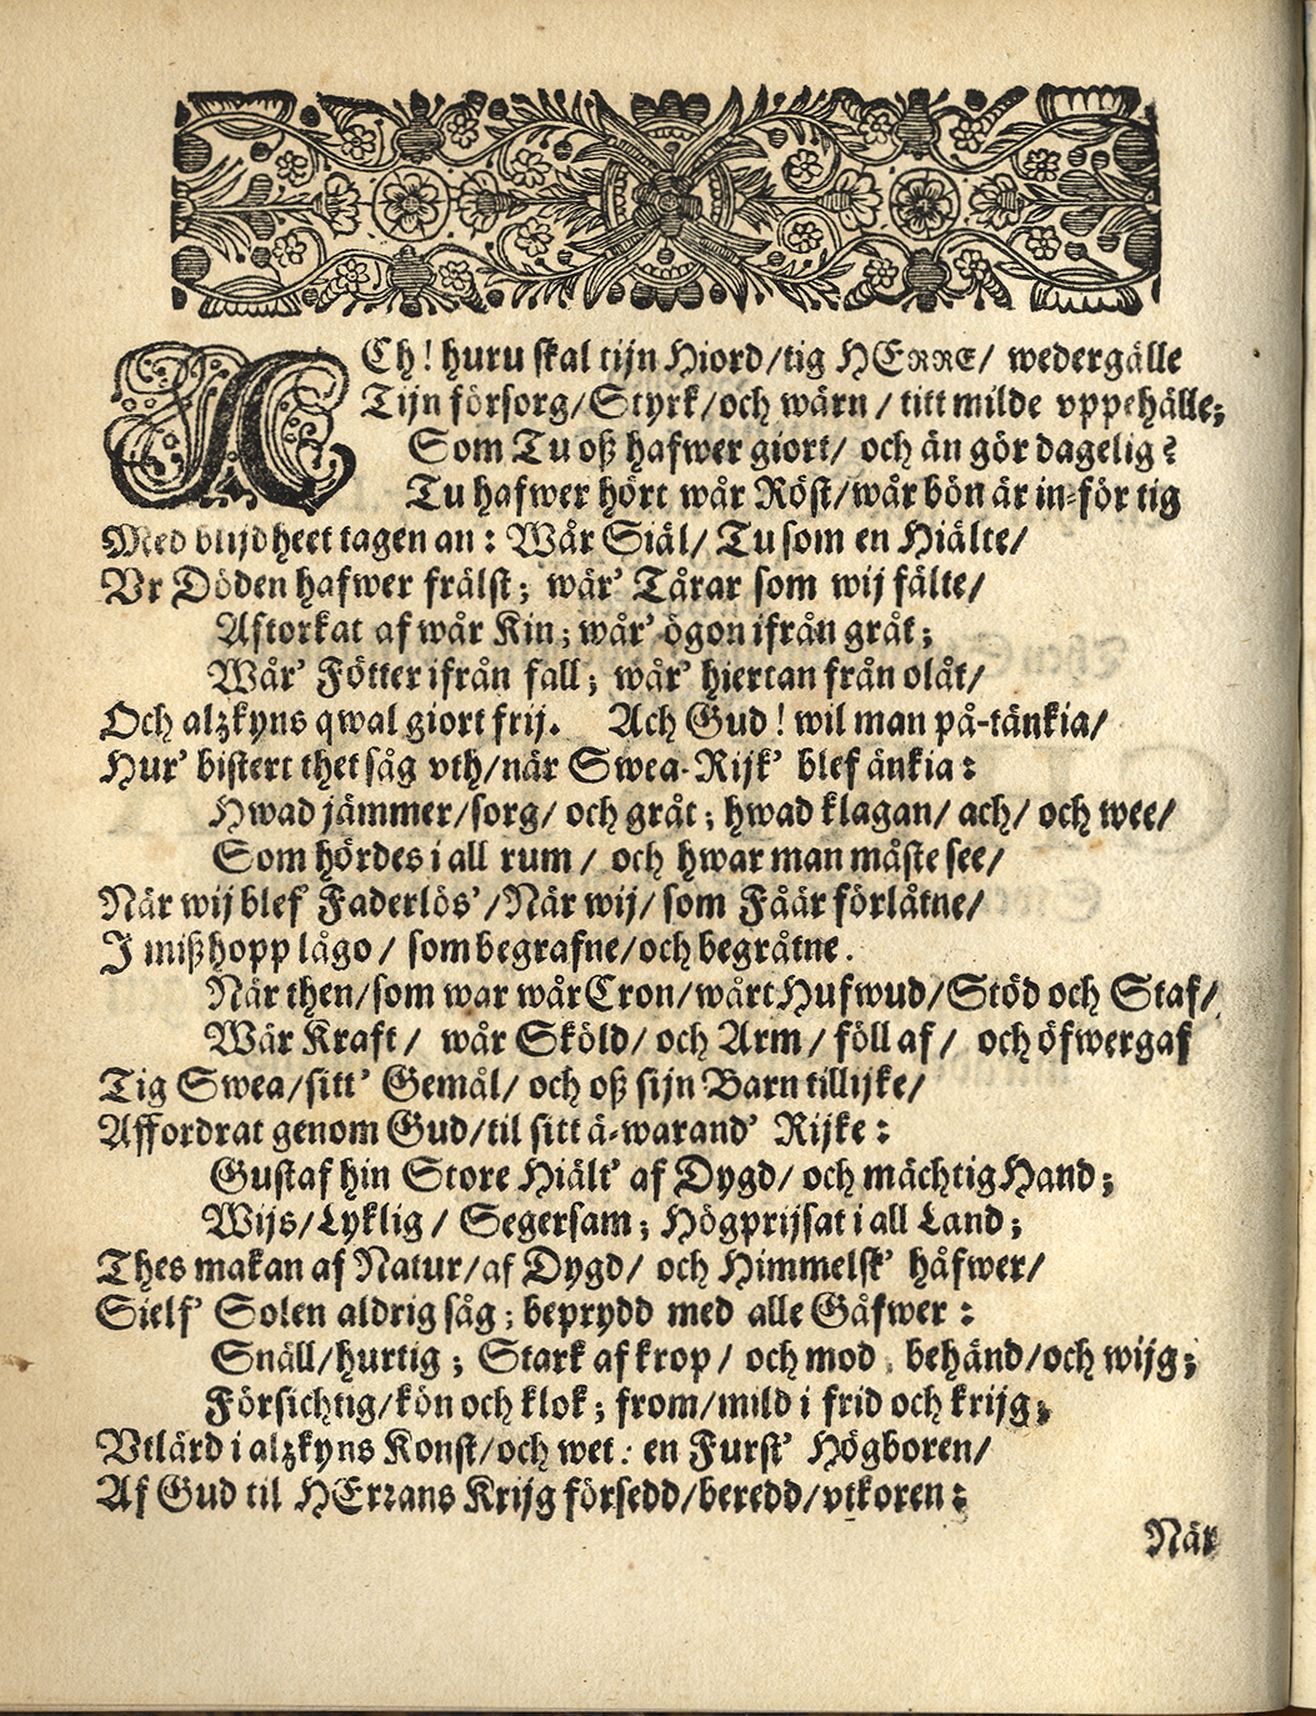 ACh! huru skal tijn Hiord/tig HERRE/ wedergälle
Tijn försorg/Styrk/och wärn/ titt milde vppehälle;
Som Tu oß hafwer giort/ och än gör dagelig?
Tu hafwer hört wår Röst/wår bön är in-för tig
Med blijdheet tagen an: Wår Siäl/ Tu som en Hiälte/
Vr Döden hafwer frälst; wår' Tårar som wij fälte/
Aftorkat af wår Kin; wår' ögon ifrån gråt;
Wår' Fötter ifrån fall; wår' hiertan från olåt/
Och alzkyns qwal giort frij. Ach Gud! wil man på-tänkia/
Hur' bistert thet såg vth/när Swea-Rijk' blef änkia:
Hwad jämmer/sorg/ och gråt; hwad klagan/ ach/ och wee/
Som hördes i all rum/ och hwar man måste see/
När wij blef' Faderlös'/När wij/ som Fåår förlåtne/
J mißhopp lågo/ som begrafne/och begråtne.
När then/som war wår Cron/wårt Hufwud/Stöd och Staf/
Wår Kraft/ wår Sköld/ och Arm/ föll af/ och öfwergaf
Tig Swea/sitt' Gemål/ och oß sijn Barn tillijke/
Affordrat genom Gud/til sitt ä-warand' Rijke:
Gustaf hin Store Hiält' af Dygd/ och mächtig Hand;
Wijs/Lyklig/ Segersam; Högprijsat i all Land;
Thes makan af Natur/af Dygd/ och Himmelsk' håfwer/
Sielf' Solen aldrig såg; beprydd med alle Gåfwer:
Snäll/hurtig; Stark af krop/ och mod, behänd/och wijg;
Försichtig/kön och klok; from/mild i frid och krijg;
Vtlärd i alzkyns Konst/och wet: en Furst' Högboren/
Af Gud til HErrans Krijg försedd/beredd/vtkoren:
När